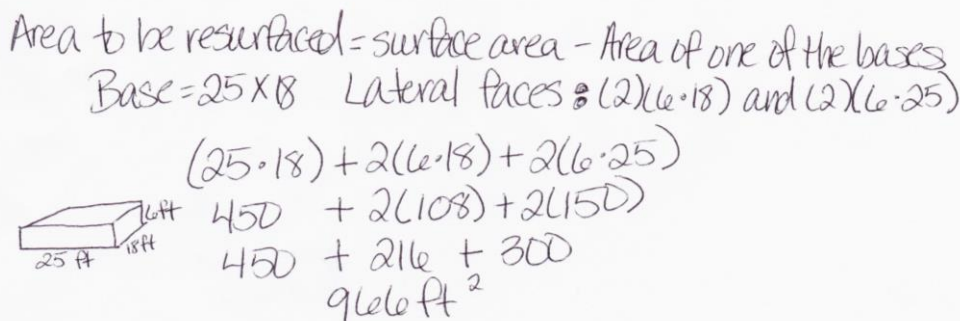 Area to be resurfaced = surface area - Area of one of the bases
Base = 25 X 18 Lateral faces: (2)(6·18) and (2)(6·25)
(25·18) + 2(6·18) + 2(6·25)
6ft 450 + 2(108) + 2(150)
18ft
25 ft 450 + 216 + 300
966 ft²